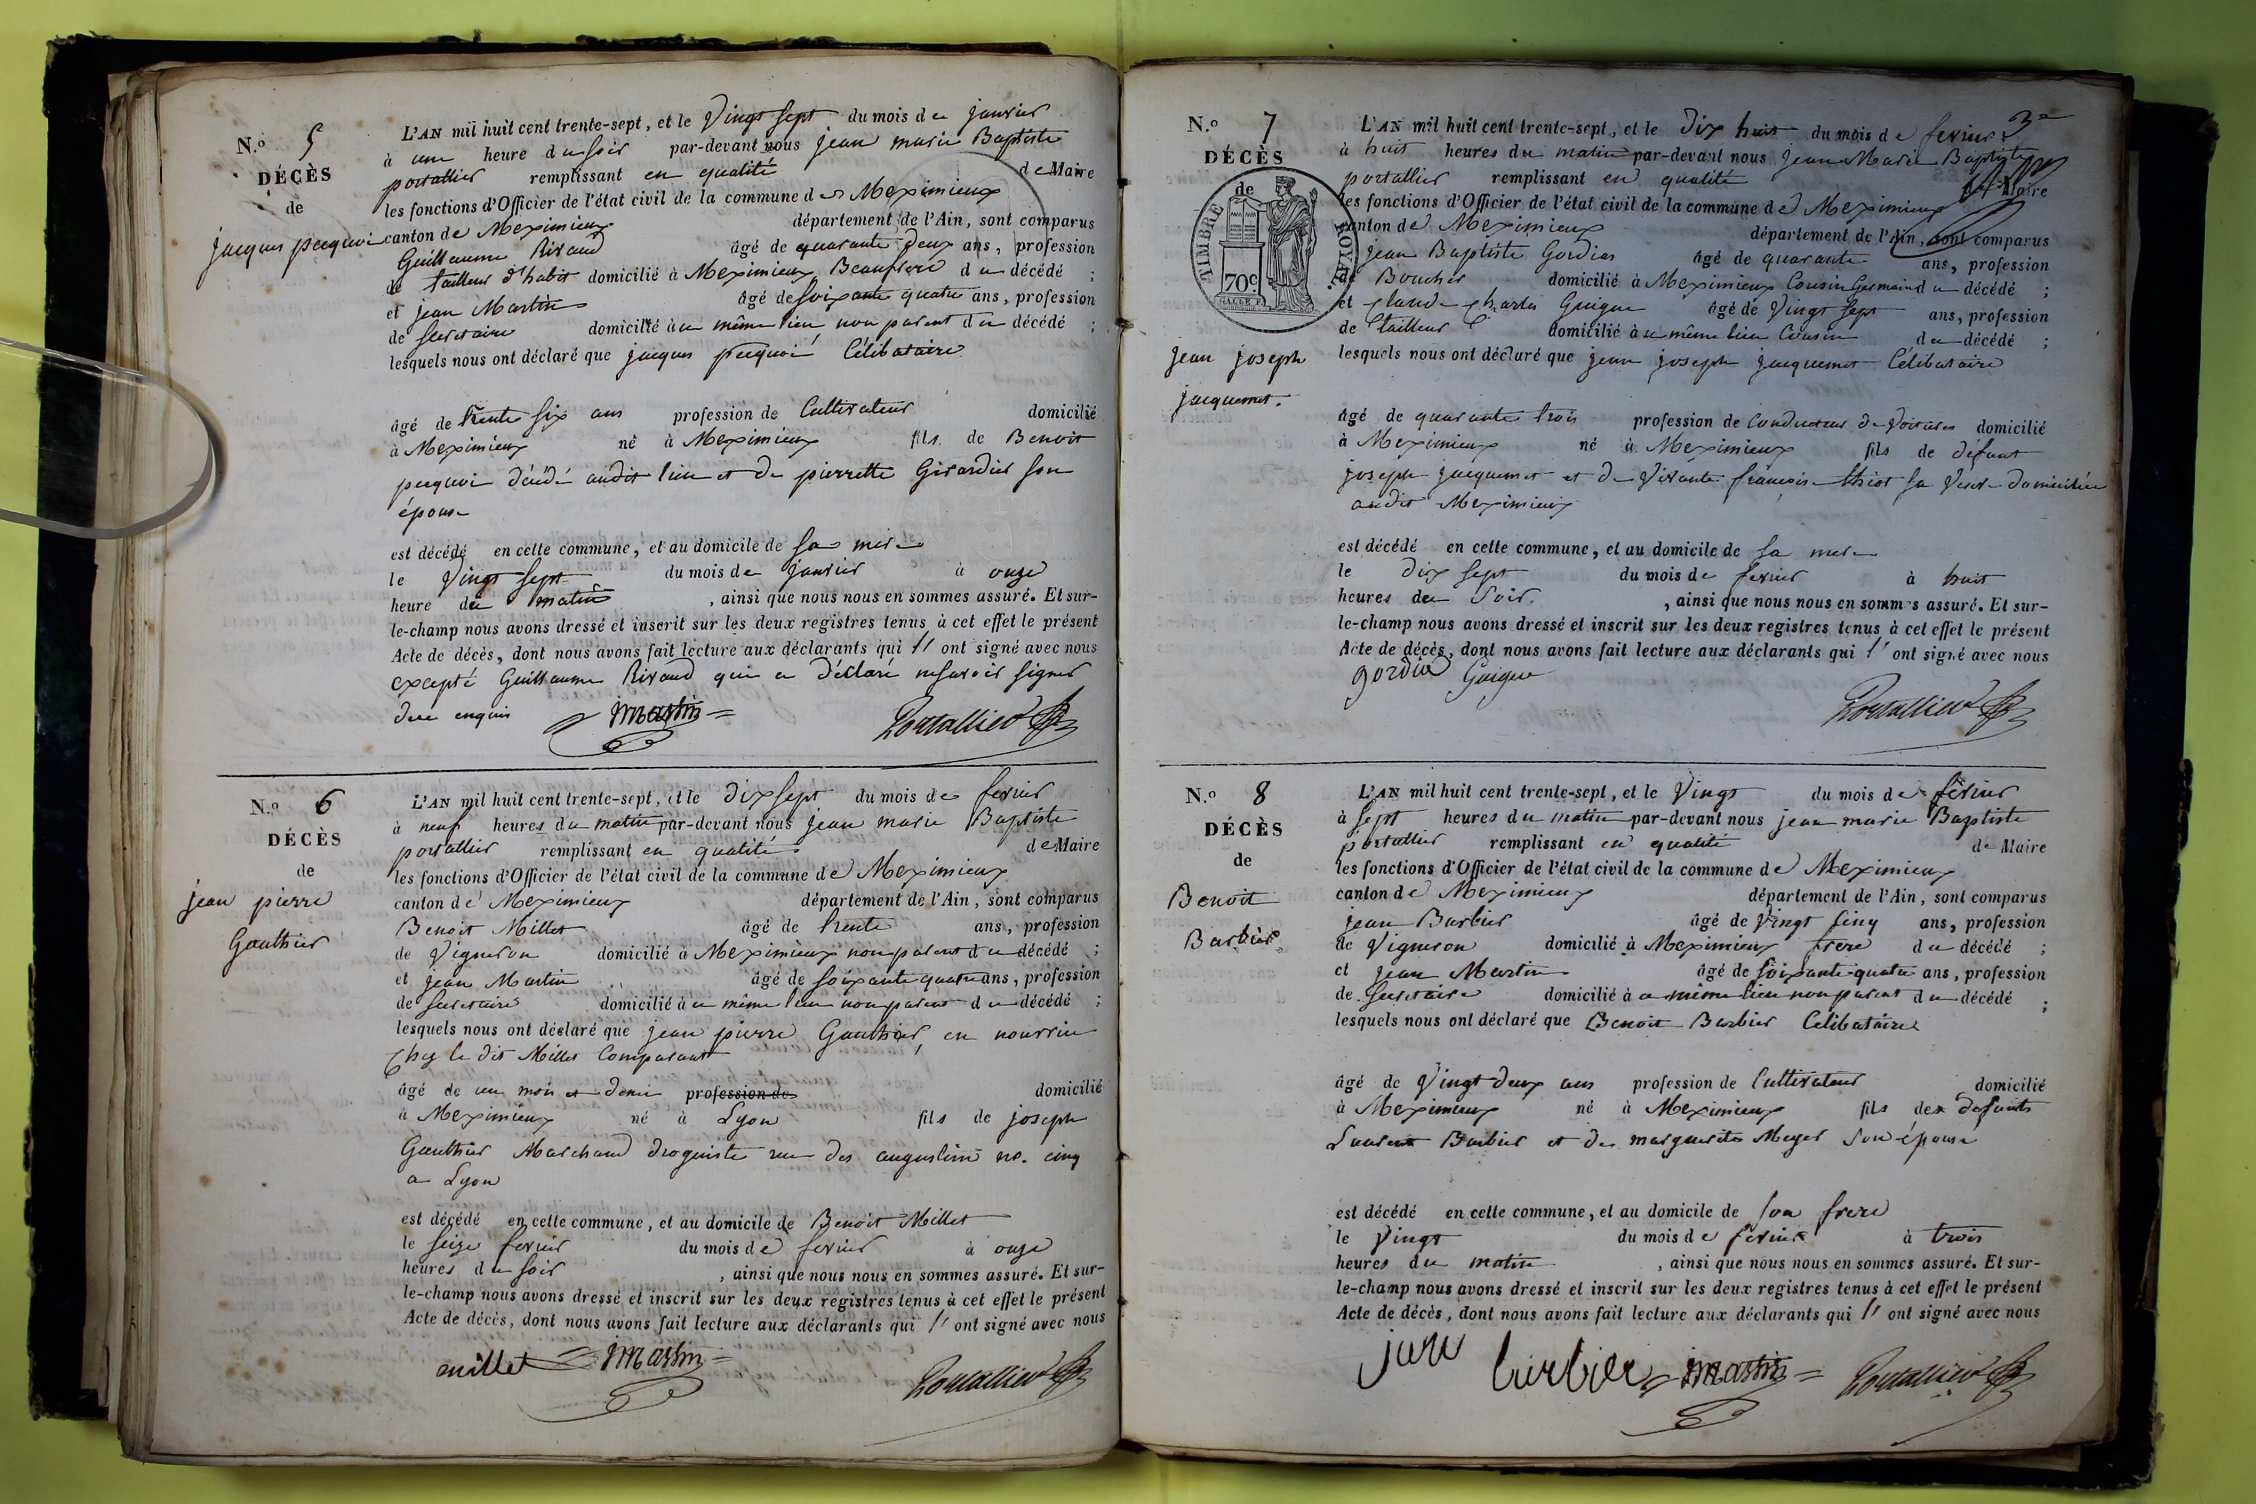 N.º 5
DÉCÈS
de
jacques pecquoi
L'AN mil huit cent trente-sept, et le Vingt sept du mois de janvier
à une heure du soir par-devant nous jean marie Baptiste
portallier remplissant en qualité de Maire
les fonctions d'Officier de l'état civil de la commune de Meximieux
canton de Meximieux département de l'Ain, sont comparus
Guillaume Rivaud âgé de quarante deux ans, profession
de tailleur d'habit domicilié à Meximieux Beaufrere du décédé ;
et jean Martin âgé de soixante quatre ans, profession
de secretaire domicilié à u même lieu non parent du décédé ;
lesquels nous ont déclaré que jacques pecquoi Célibataire
âgé de trente six ans profession de Cultivateur domicilié
à Meximieux né à Meximieux fils de Benoit
pecquoi décédé audit lieu et de pierrette Girardier son
épouse
est décédé en cette commune, et au domicile de sa mere
le Vingt sept du mois de janvier à onze
heure du matin , ainsi que nous nous en sommes assuré. Et sur-
le-champ nous avons dressé et inscrit sur les deux registres tenus à cet effet le présent
Acte de décès, dont nous avons fait lecture aux déclarants qui l' ont signé avec nous
excepté Guillaume Rivaud qui a déclaré ne savoir signer
de ce enquis jmartin Portallier
N.º 6
DÉCÈS
de
jean pierre
Gauthier
L'AN mil huit cent trente-sept, et le dix sept du mois de fevrier
à neuf heures du matin par-devant nous jean marie Baptiste
portallier remplissant en qualité de Maire
les fonctions d'Officier de l'état civil de la commune de Meximieux
canton de Meximieux département de l'Ain, sont comparus
Benoit Millet âgé de trente ans, profession
de Vigneron domicilié à Meximieux non parent du décédé ;
et jean Martin âgé de soixante quatre ans, profession
de secretaire domicilié à u même lieu non parent du décédé ;
lesquels nous ont déclaré que jean pierre Gauthier, en nourrice
Chez le dit Millet Comparant
âgé de un mois et demi profession de domicilié
à Meximieux né à Lyon fils de joseph
Gauthier Marchand droguiste rue des augustins no. cinq
a Lyon
est décédé en cette commune, et au domicile de Benoit Millet
le seize fevrier du mois de fevrier à onze
heures du soir , ainsi que nous nous en sommes assuré. Et sur-
le-champ nous avons dressé et inscrit sur les deux registres tenus à cet effet le présent
Acte de décès, dont nous avons fait lecture aux déclarants qui l' ont signé avec nous
millet jmartin Portallier
N.º 7
DÉCÈS
de
TIMBRE ROYAL
70c
jean joseph
jacquemet.
L'AN mil huit cent trente-sept, et le dix huit du mois de fevrier 3e
à huit heures du matin par-devant nous jean Marie Baptiste
portallier remplissant en qualité de Maire
les fonctions d'Officier de l'état civil de la commune de Meximieux
canton de Meximieux département de l'Ain, sont comparus
jean Baptiste Gordias âgé de quarante ans, profession
de Boucher domicilié à Meximieux Cousin Germain du décédé ;
et Claude Charles Guigue âgé de Vingt sept ans, profession
de tailleur domicilié à u même lieu Cousin du décédé ;
lesquels nous ont déclaré que jean joseph jacquemet Célibataire
âgé de quarante trois profession de Conducteur de Voitures domicilié
à Meximieux né à Meximieux fils de défunt
joseph jacquemet et de Vivante françoise thiot sa Veuve domiciliée
audit Meximieux
est décédé en cette commune, et au domicile de sa mere
le dix sept du mois de fevrier à huit
heures du soir. , ainsi que nous nous en sommes assuré. Et sur-
le-champ nous avons dressé et inscrit sur les deux registres tenus à cet effet le présent
Acte de décès, dont nous avons fait lecture aux déclarants qui l' ont signé avec nous
gordia Guigue
Portallier
N.º 8
DÉCÈS
de
Benoit
Barbier
L'AN mil huit cent trente-sept, et le Vingt du mois de fevrier
à sept heures du matin par-devant nous jean marie Baptiste
portallier remplissant en qualité de Maire
les fonctions d'Officier de l'état civil de la commune de Meximieux
canton de Meximieux département de l'Ain, sont comparus
jean Barbier âgé de Vingt cinq ans, profession
de Vigneron domicilié à Meximieux frere du décédé ;
et jean Martin âgé de soixante quatre ans, profession
de secretaire domicilié à u même lieu non parent du décédé ;
lesquels nous ont déclaré que Benoit Barbier Célibataire
âgé de Vingt deux ans profession de Cultivateur domicilié
à Meximieux né à Meximieux fils des defunts
Laurent Barbier et de marguerite Meyer son épouse
est décédé en cette commune, et au domicile de son frere
le Vingt du mois de fevrier à trois
heures du matin , ainsi que nous nous en sommes assuré. Et sur-
le-champ nous avons dressé et inscrit sur les deux registres tenus à cet effet le présent
Acte de décès, dont nous avons fait lecture aux déclarants qui l' ont signé avec nous
jean barbier jmartin Portallier